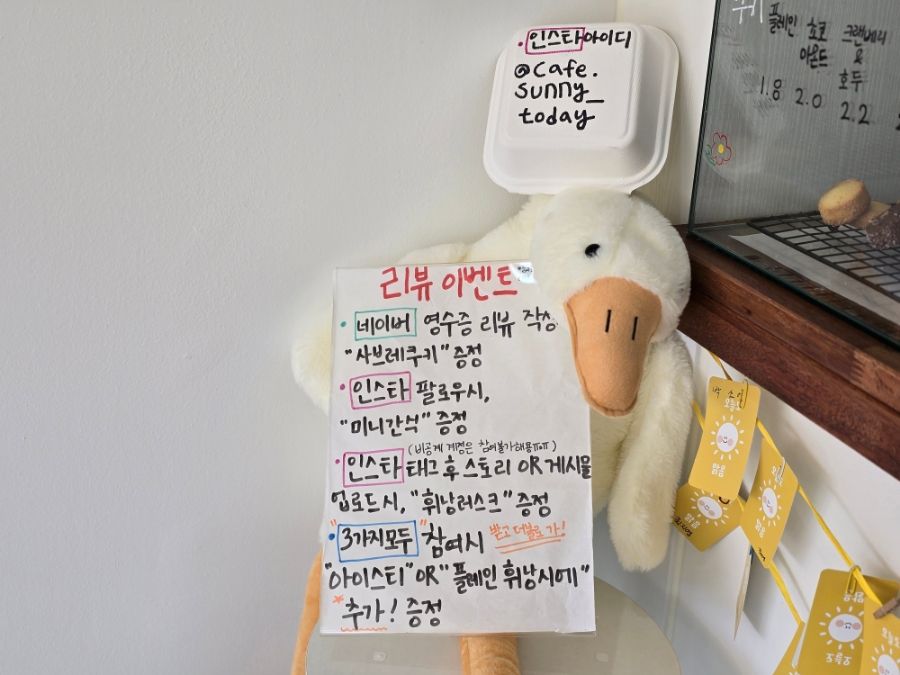 • 인스타 아이디
@cafe.
sunny_
today
휘
플레인
초코
아몬드
크랜베리
&
호두
1.8
2.0
2.2
리뷰 이벤트
• 네이버 영수증 리뷰 작성
"사브레쿠키" 증정
• 인스타 팔로우시,
"미니간식" 증정
(비공계 계정은 참여불가해용ㅠㅠ)
• 인스타 태그 후 스토리 OR 게시물
업로드시, "휘낭러스크" 증정
• "3가지모두" 참여시 받고 더블로 가!
"아이스티" OR "플레인 휘낭시에"
*추가! 증정
오늘도
맑음
맑음
맑음
맑음
오늘도